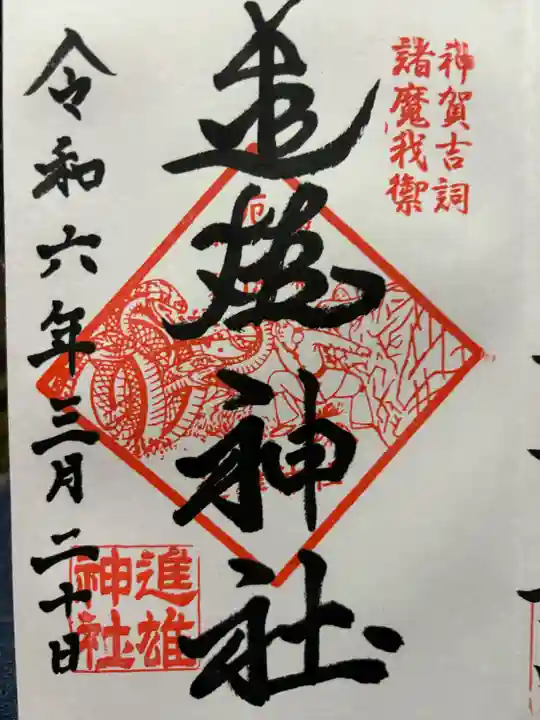 神賀吉詞
諸魔我禦
進雄神社
進雄
神社
令和六年三月二十日